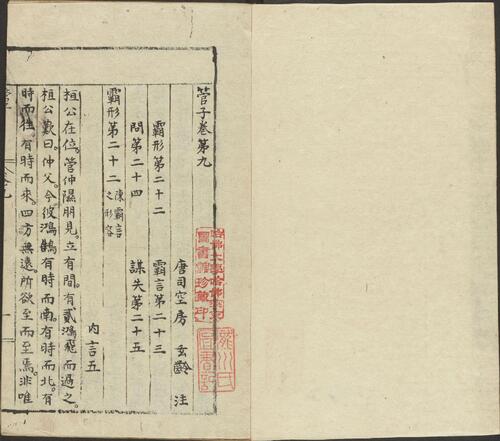 管子卷第九
唐司空房 玄齡 注
霸形第二十二 霸言第二十三
問第二十四 謀失第二十五
霸形第二十二 陳霸言之形容 內言五
桓公在位。管仲隰朋見。立有間。有貳鴻飛而過之。
桓公歎曰。仲父。今彼鴻鵠有時而南。有時而北。有
時而徃。有時而來。四方無遠。所欲至而至焉。非唯
哈佛大學哈佛燕京
圖書館珍藏印